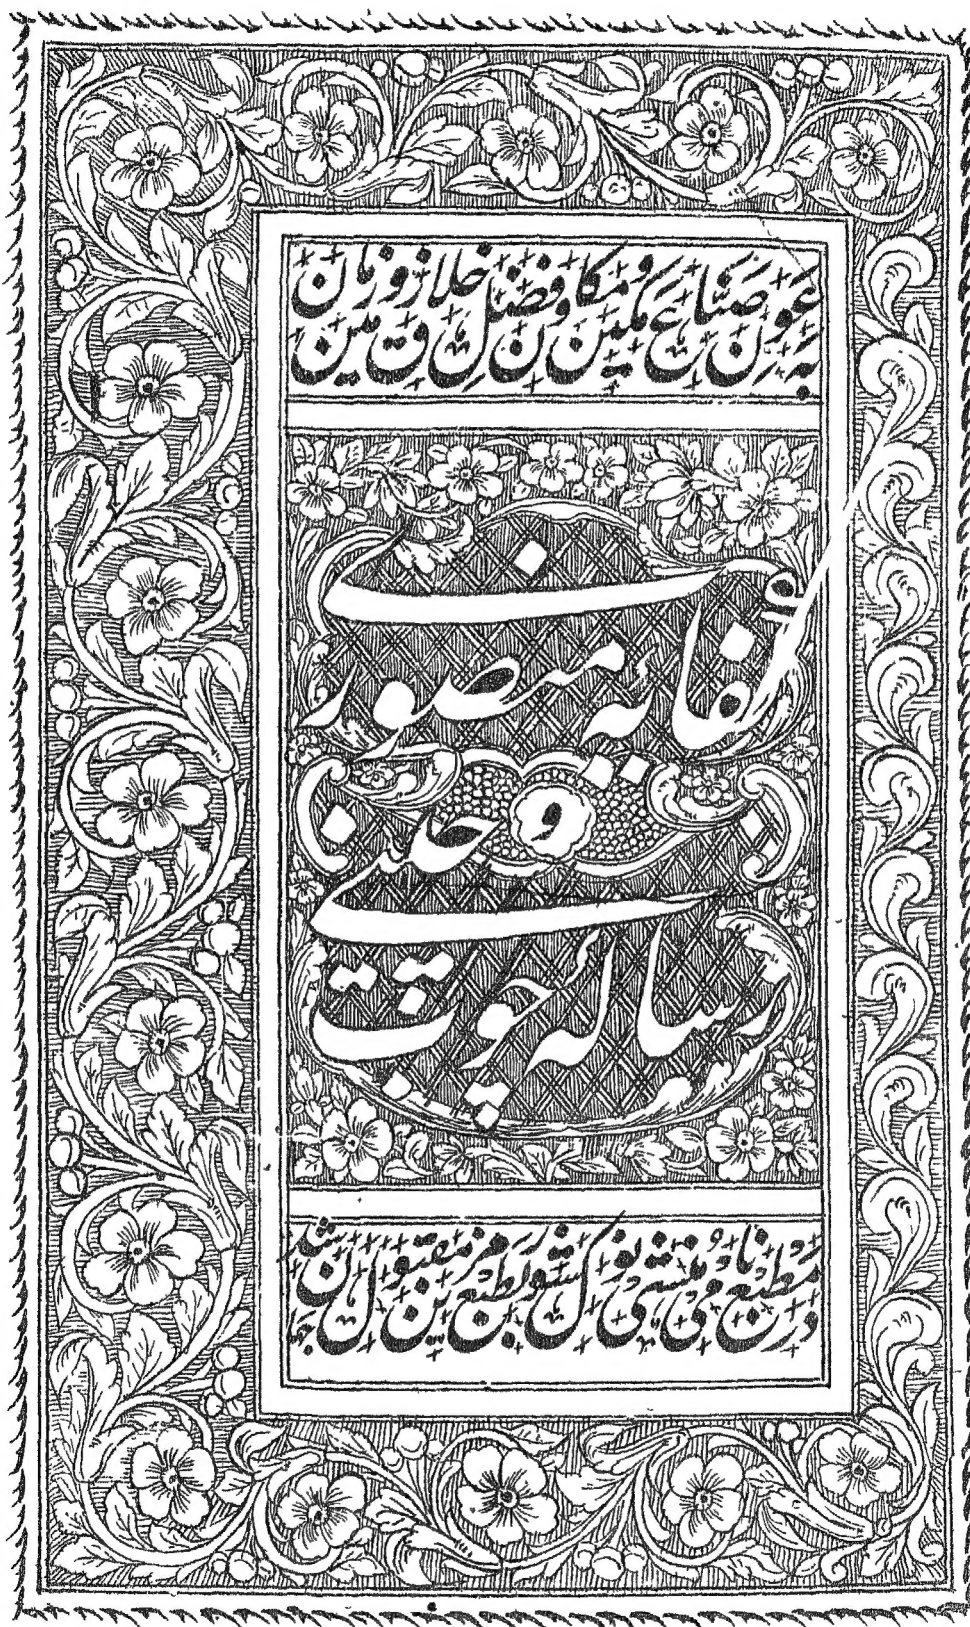 بعون صناع مکین و مکان و فضل خلاق زمین و زمان
کفایہ منصوری
و
رسالہ چوب چینی
در مطبع نامی منشی نول کشور بطبع مزین مقبول جہان شد